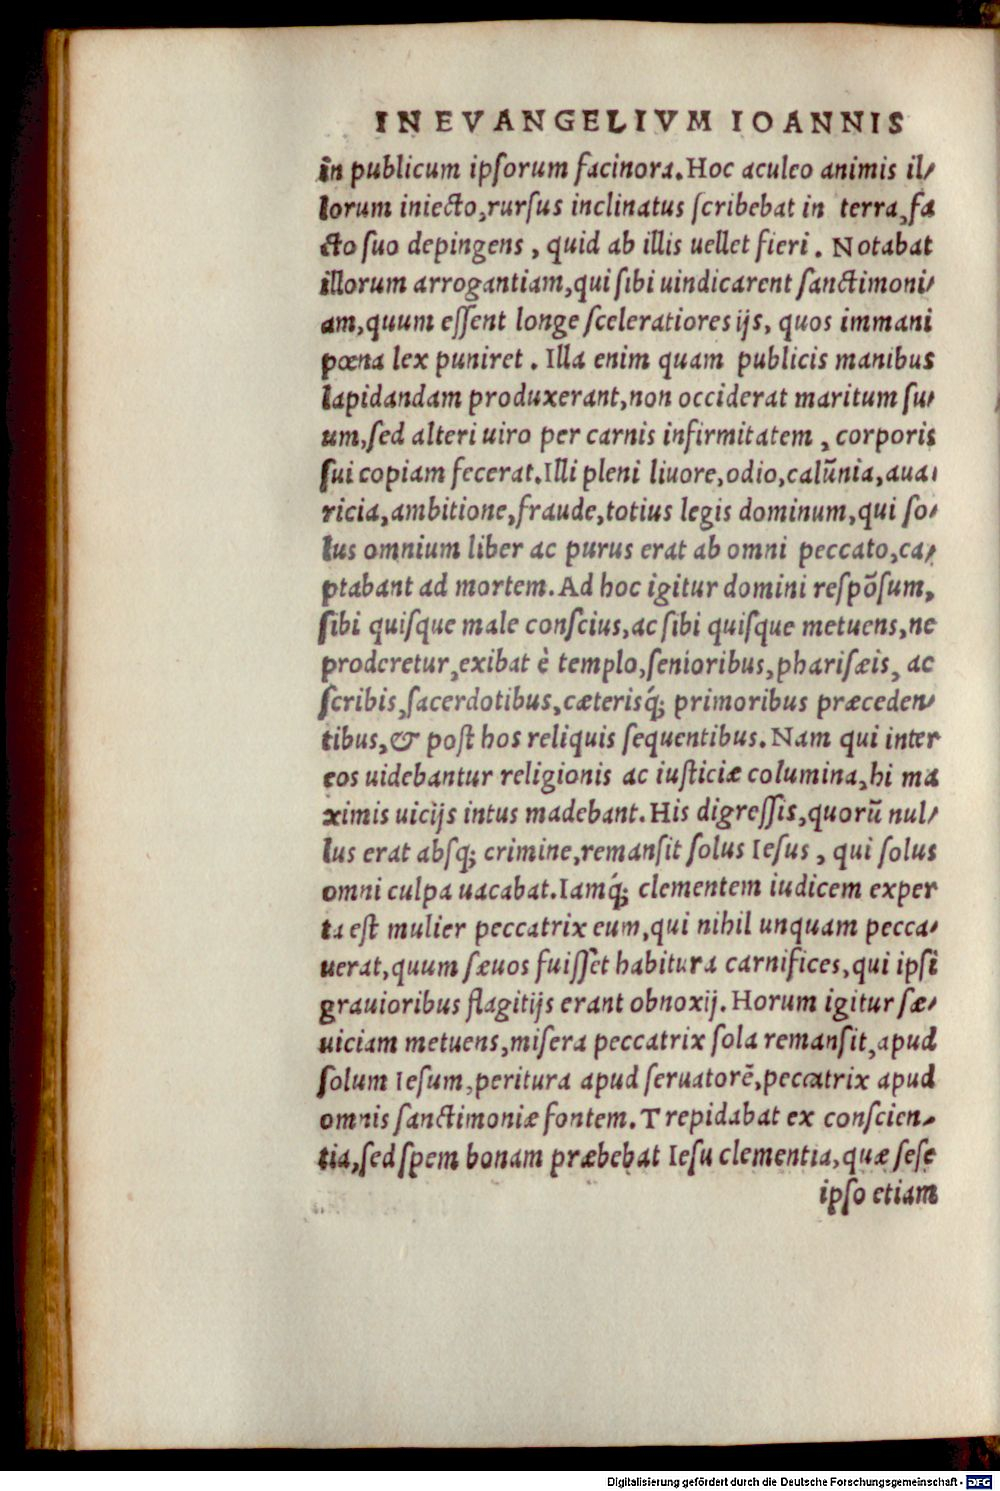 IN EVANGELIVM IOANNIS
in publicum ipſorum facinora. Hoc aculeo animis il⸗
lorum iniecto, rurſus inclinatus ſcribebat in terra, fa
cto ſuo depingens, quid ab illis uellet fieri. Notabat
illorum arrogantiam, qui ſibi uindicarent ſanctimoni⸗
am, quum eſſent longe ſceleratiores ijs, quos immani
pœna lex puniret. Illa enim quam publicis manibus
lapidandam produxerant, non occiderat maritum ſu⸗
um, ſed alteri uiro per carnis infirmitatem, corporis
ſui copiam fecerat. Illi pleni liuore, odio, calũnia, aua⸗
ricia, ambitione, fraude, totius legis dominum, qui ſo⸗
lus omnium liber ac purus erat ab omni peccato, ca⸗
ptabant ad mortem. Ad hoc igitur domini reſpõſum,
ſibi quiſque male conſcius, ac ſibi quiſque metuens, ne
proderetur, exibat è templo, ſenioribus, phariſæis, ac
ſcribis, ſacerdotibus, cæterisq́; primoribus præceden⸗
tibus, & poſt hos reliquis ſequentibus. Nam qui inter
eos uidebantur religionis ac iuſticiæ columina, hi ma
ximis uicijs intus madebant. His digreſſis, quorũ nul⸗
lus erat absq; crimine, remanſit ſolus Ieſus, qui ſolus
omni culpa uacabat. Iamq́; clementem iudicem exper
ta eſt mulier peccatrix eum, qui nihil unquam pecca⸗
uerat, quum ſæuos fuiſſet habitura carnifices, qui ipſi
grauioribus flagitijs erant obnoxij. Horum igitur ſæ⸗
uiciam metuens, miſera peccatrix ſola remanſit, apud
ſolum Ieſum, peritura apud ſeruatorẽ, peccatrix apud
omnis ſanctimoniæ fontem. Trepidabat ex conſcien⸗
tia, ſed ſpem bonam præbebat Ieſu clementia, quæ ſeſe
ipſo etiam
Digitalisierung gefördert durch die Deutsche Forschungsgemeinschaft - DFG